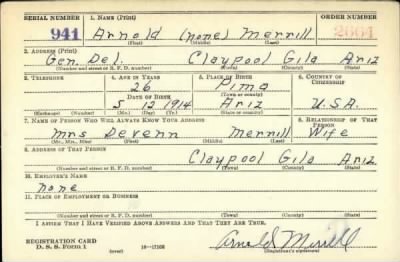 SERIAL NUMBER 1. NAME (Print) ORDER NUMBER
941 Arnold (none) Merrill 2664
(First) (Middle) (Last)
2. ADDRESS (Print)
Gen. Del. Claypool Gila Ariz
(Number and street or R. F. D. number) (Town) (County) (State)
3. TELEPHONE 4. AGE IN YEARS 5. PLACE OF BIRTH 6. COUNTRY OF CITIZENSHIP
26 Pima
DATE OF BIRTH (Town or county)
5 12 1914 Ariz U.S.A.
(Exchange) (Number) (Mo.) (Day) (Yr.) (State or country)
7. NAME OF PERSON WHO WILL ALWAYS KNOW YOUR ADDRESS 8. RELATIONSHIP OF THAT PERSON
Mrs Devenn Merrill Wife
(Mr., Mrs., Miss) (First) (Middle) (Last)
9. ADDRESS OF THAT PERSON
Claypool Gila Ariz
(Number and street or R. F. D. number) (Town) (County) (State)
10. EMPLOYER'S NAME
none
11. PLACE OF EMPLOYMENT OR BUSINESS
(Number and street or R. F. D. number) (Town) (County) (State)
I AFFIRM THAT I HAVE VERIFIED ABOVE ANSWERS AND THAT THEY ARE TRUE.
REGISTRATION CARD
D. S. S. Form 1 (over) 16—17105 Arnold Merrill
(Registrant's signature)